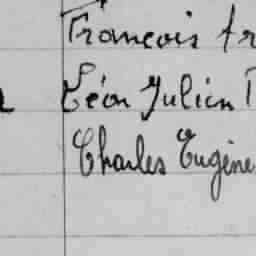 François fr
Léon Julien
Charles Eugène